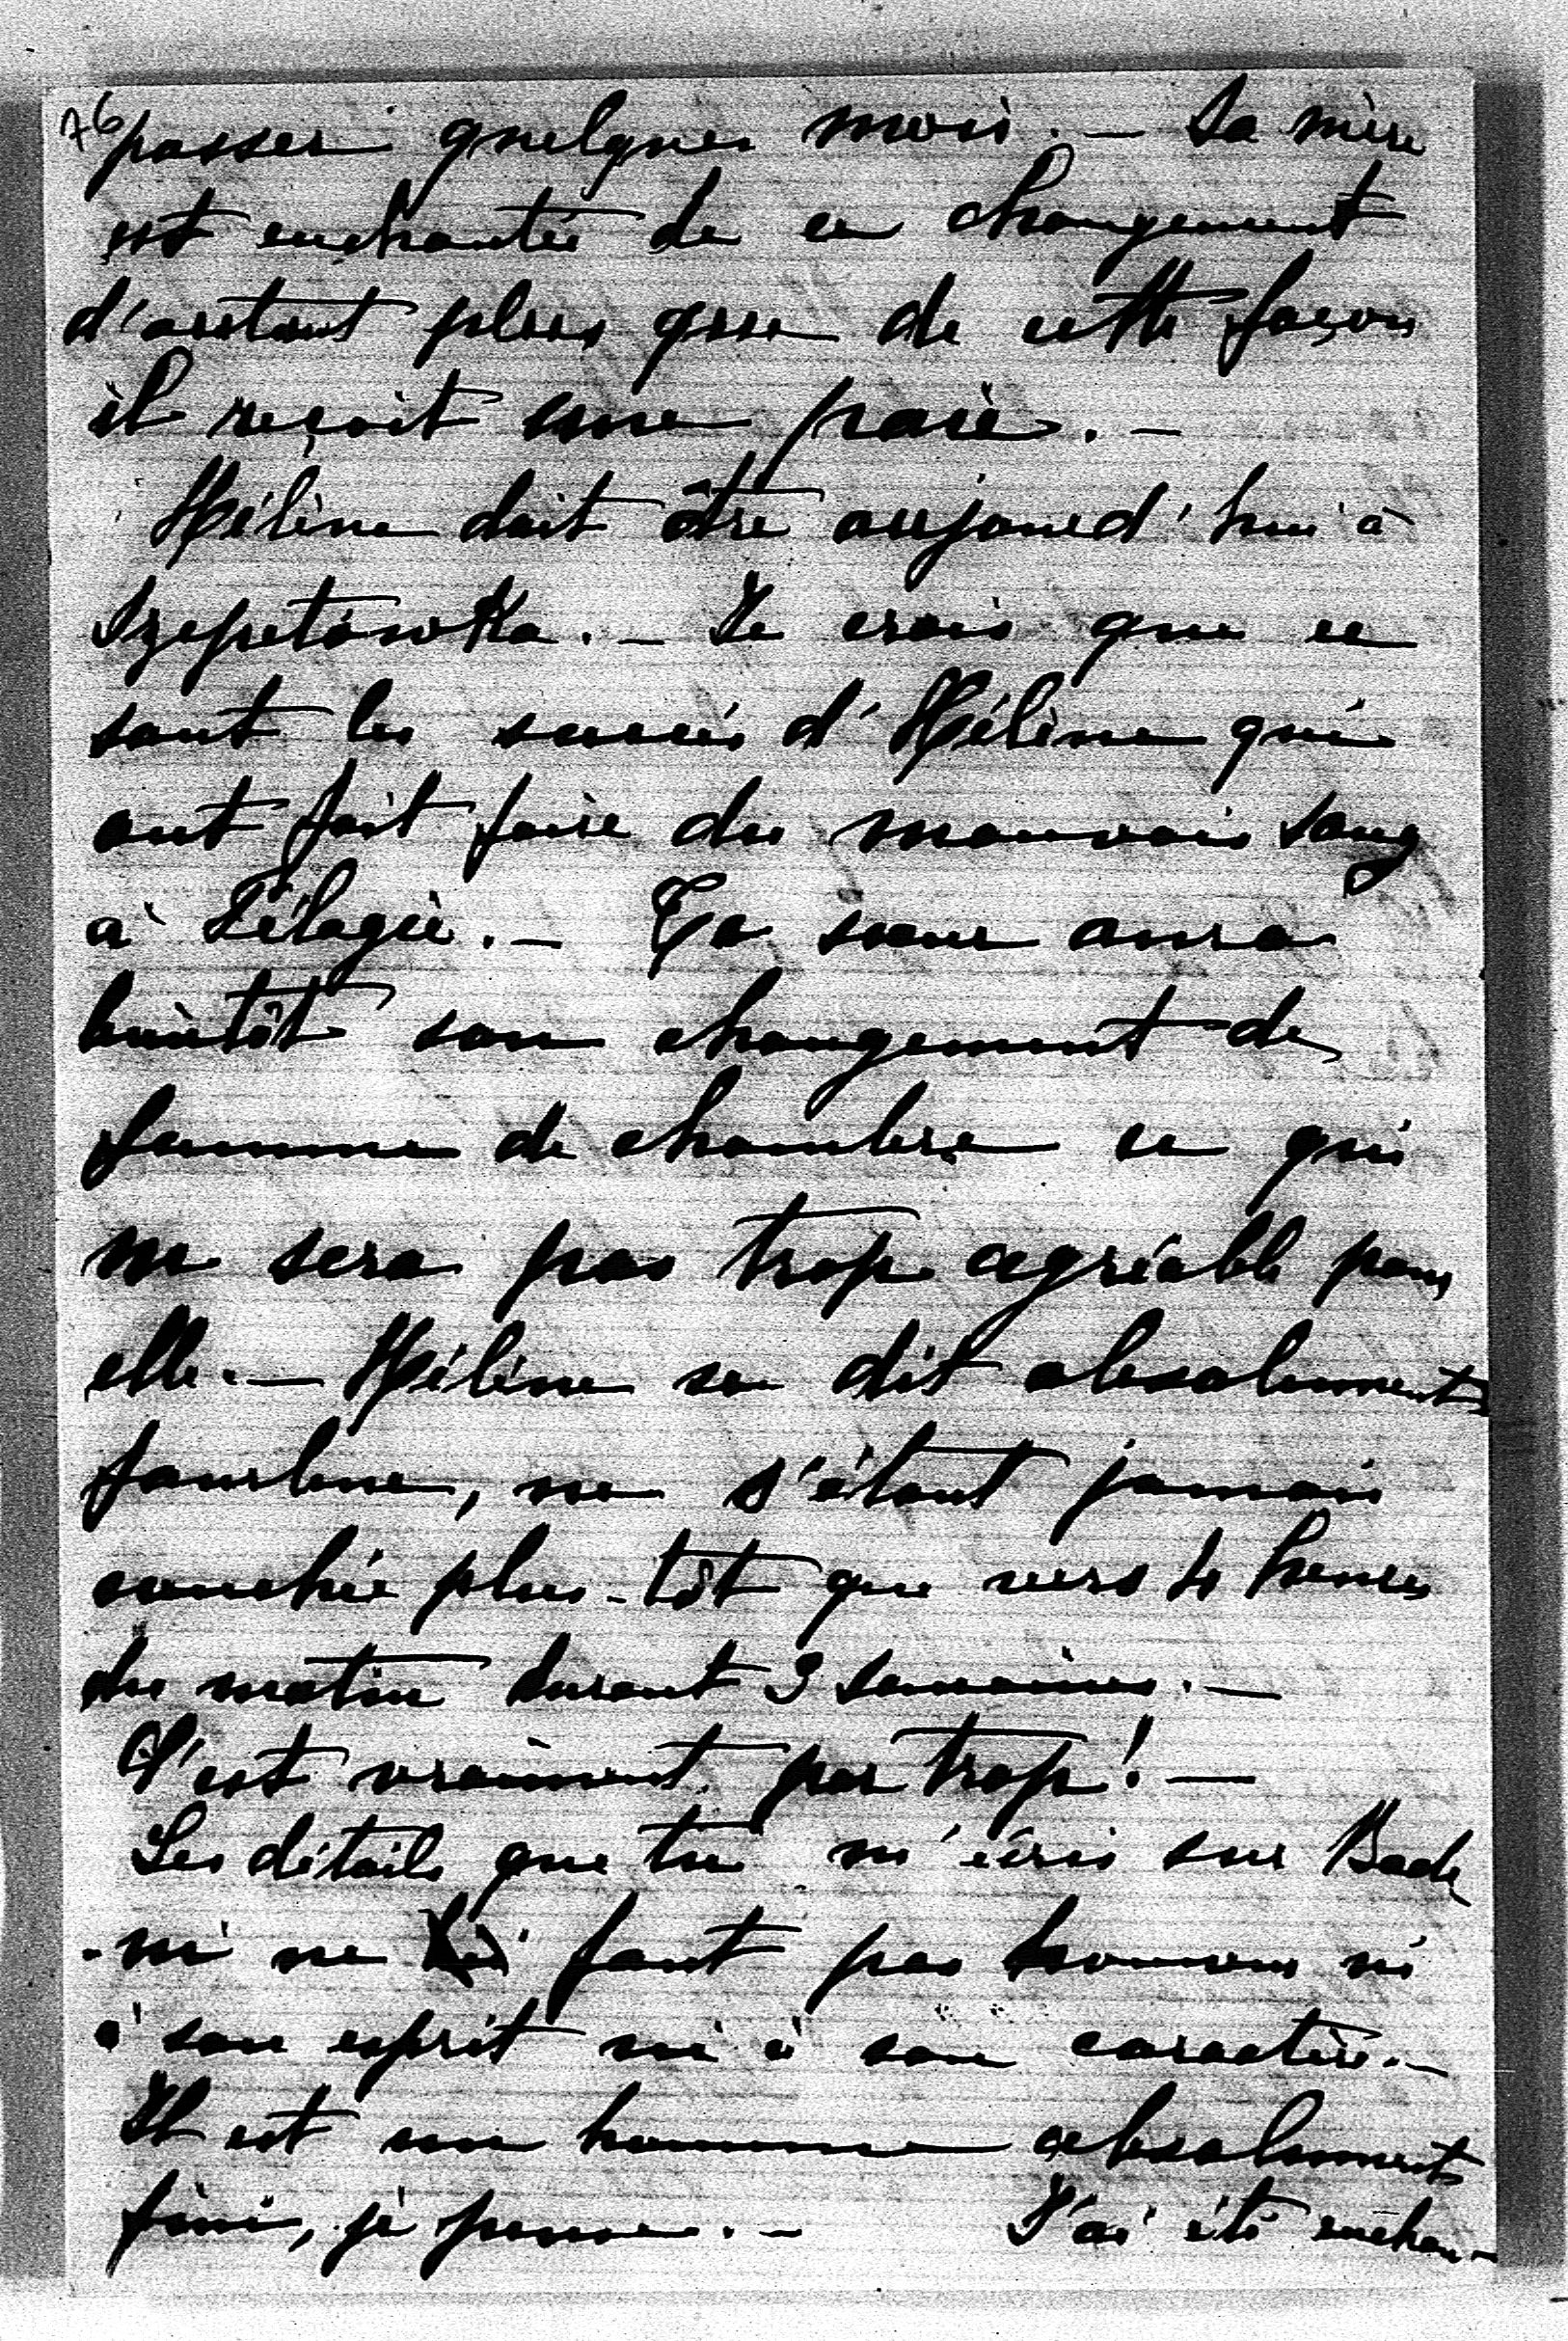 76 passer quelques mois. — Sa mère
est enchantée de ce changement
d'autant plus que de cette façon
il reçoit une paie. —
Hélène doit être aujourd'hui à
Szepetówka. — Je crois que ce
sont les succès d'Hélène qui
ont fait faire du mauvais sang
à Pélagie. — Ta sœur aura
bientôt son changement de
femme de chambre ce qui
ne sera pas trop agréable pour
elle. — Hélène se dit absolument
fourbue, ne s'étant jamais
couchée plus-tôt que vers 4 heures
du matin durant 3 semaines. —
C'est vraiment par trop! —
Les détails que tu m'écris sur Bade
-ni ne font pas honneur ni
à son esprit ni à son caractère. —
Il est un homme absolument
fini, je pense. — J'ai été enchan-